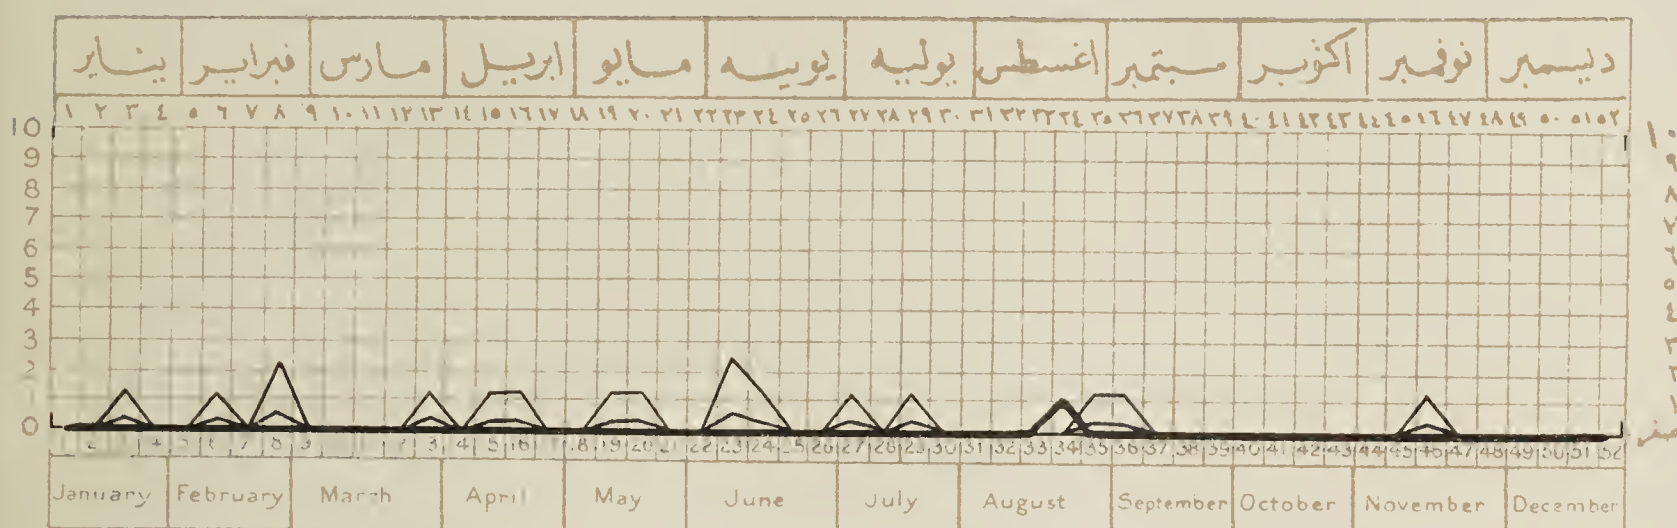 يناير فبراير مارس ابريل مايو يونيه يوليه اغسطس سبتمبر اكتوبر نوفمبر ديسمبر
١ ٢ ٣ ٤ ٥ ٦ ٧ ٨ ٩ ١٠ ١١ ١٢ ١٣ ١٤ ١٥ ١٦ ١٧ ١٨ ١٩ ٢٠ ٢١ ٢٢ ٢٣ ٢٤ ٢٥ ٢٦ ٢٧ ٢٨ ٢٩ ٣٠ ٣١ ٣٢ ٣٣ ٣٤ ٣٥ ٣٦ ٣٧ ٣٨ ٣٩ ٤٠ ٤١ ٤٢ ٤٣ ٤٤ ٤٥ ٤٦ ٤٧ ٤٨ ٤٩ ٥٠ ٥١ ٥٢
10 ١٠
9 ٩
8 ٨
7 ٧
6 ٦
5 ٥
4 ٤
3 ٣
2 ٢
1 ١
0 صفر
2 4 5 6 7 8 9 3 4 5 16 18 19 20 21 22 23 24 25 26 27 28 29 30 31 32 33 34 35 36 37 38 39 40 41 42 43 44 45 46 47 48 49 50 51 52
January February March April May June July August September October November December